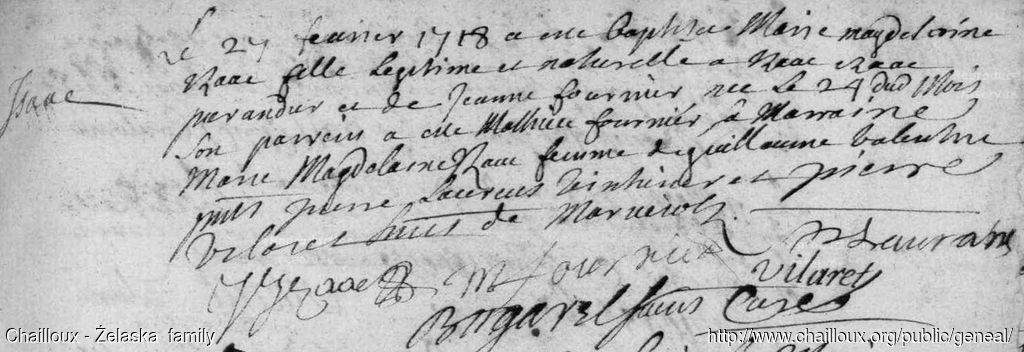 Le 27 feurier 1718 a este Baptizee Marie magdeleine
Isaac fille legitime et naturelle a Isaac Isaac
Isaac
et de Jeanne fournier nee le 24 dud mois
son parrein a este Mathieu fournier sa Marraine
Marie Magdelaine Isaac femme de guillaume valentin
pnts pierre Laurens teinturier et pierre
vilaret huit de Marueiolz
J Yzaac M fournier P Laurans
vilaret
Bugarel Curé
Chailloux - Żelaska family
http://www.chailloux.org/public/geneal/